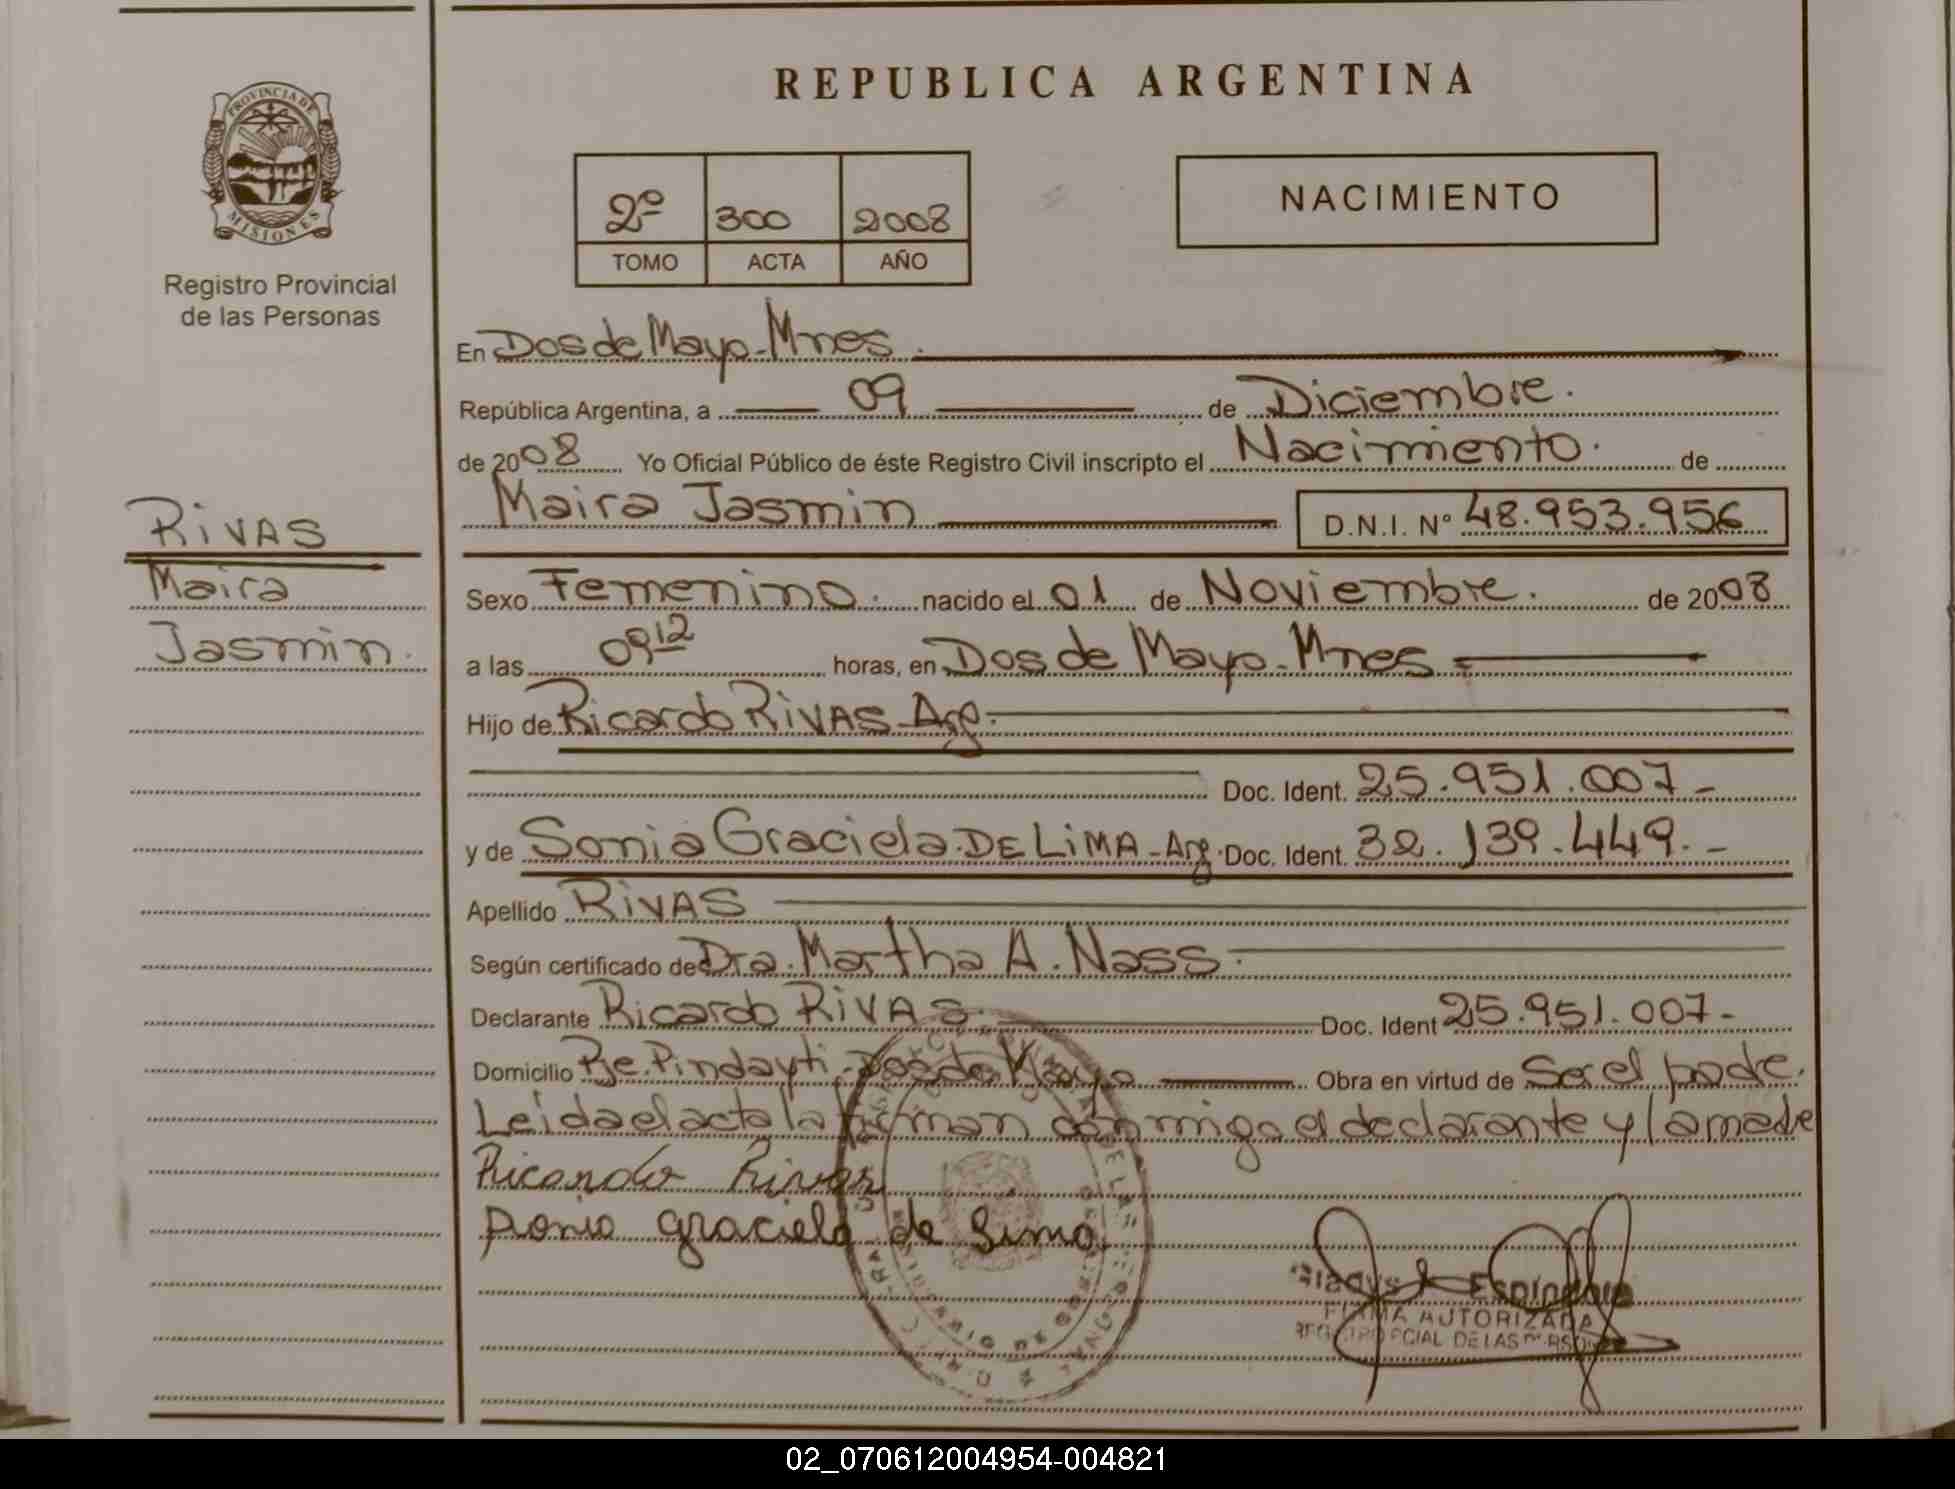 REPUBLICA ARGENTINA
PROVINCIA DE
MISIONES
Registro Provincial
de las Personas
2º 300 2008
TOMO ACTA AÑO
NACIMIENTO
En Dos de Mayo - Mnes.
República Argentina, a 09 de Diciembre.
de 2008 Yo Oficial Público de éste Registro Civil inscripto el Nacimiento. de
Maira Jasmin D.N.I. Nº 48.953.956
RIVAS
Maira
Jasmin.
Sexo Femenino. nacido el 01 de Noviembre. de 2008
a las 09 12 horas, en Dos de Mayo - Mnes
Hijo de Ricardo RIVAS - Arg.
Doc. Ident. 25.951.007 -
y de Sonia Graciela DE LIMA - Arg. Doc. Ident. 32.139.449. -
Apellido RIVAS
Según certificado de Dra. Martha A. Nass.
Declarante Ricardo RIVAS Doc. Ident 25.951.007 -
Domicilio Pje. Pindayti - Dos de Mayo Obra en virtud de Ser el padre.
Leida el acta la firman conmigo el declarante y la madre
Ricardo Rivas
Sonia graciela de Lima
Gladys Espíndola
FIRMA AUTORIZADA
02_070612004954-004821